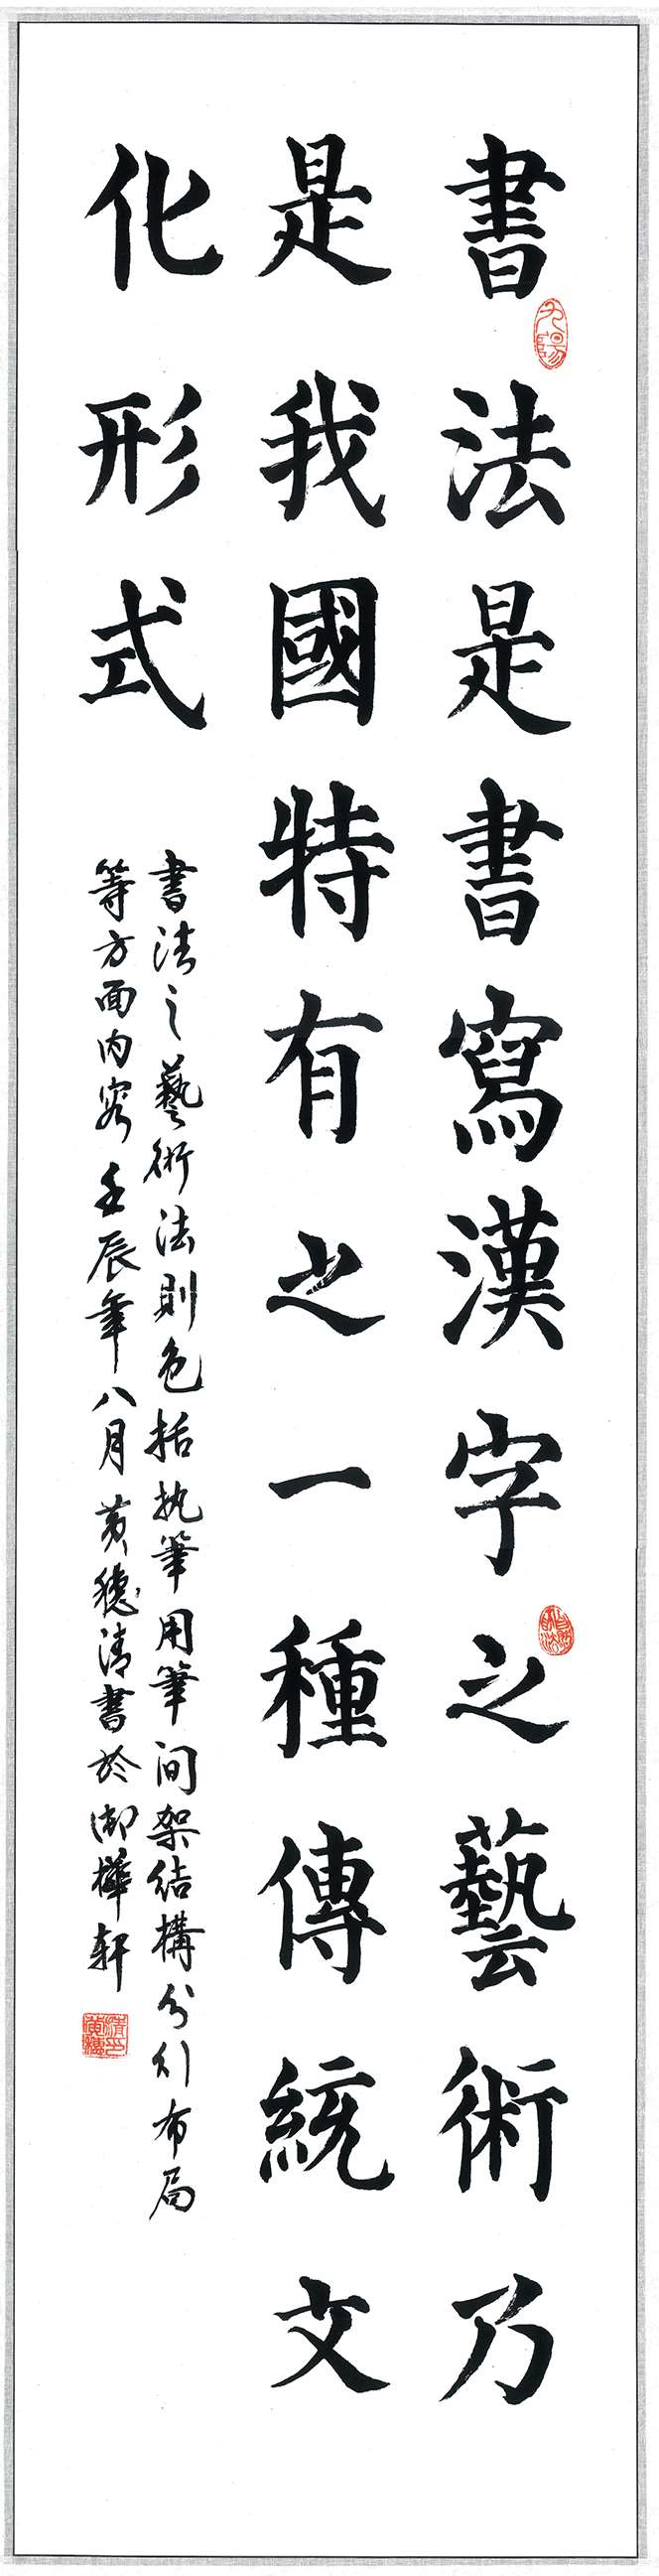 書法是書寫漢字之藝術乃
是我國特有之一種傳統文
化形式
書法之藝術法則包括执筆用筆间架结構分行布局
等方面内容壬辰年八月黄穗清書於御樺轩